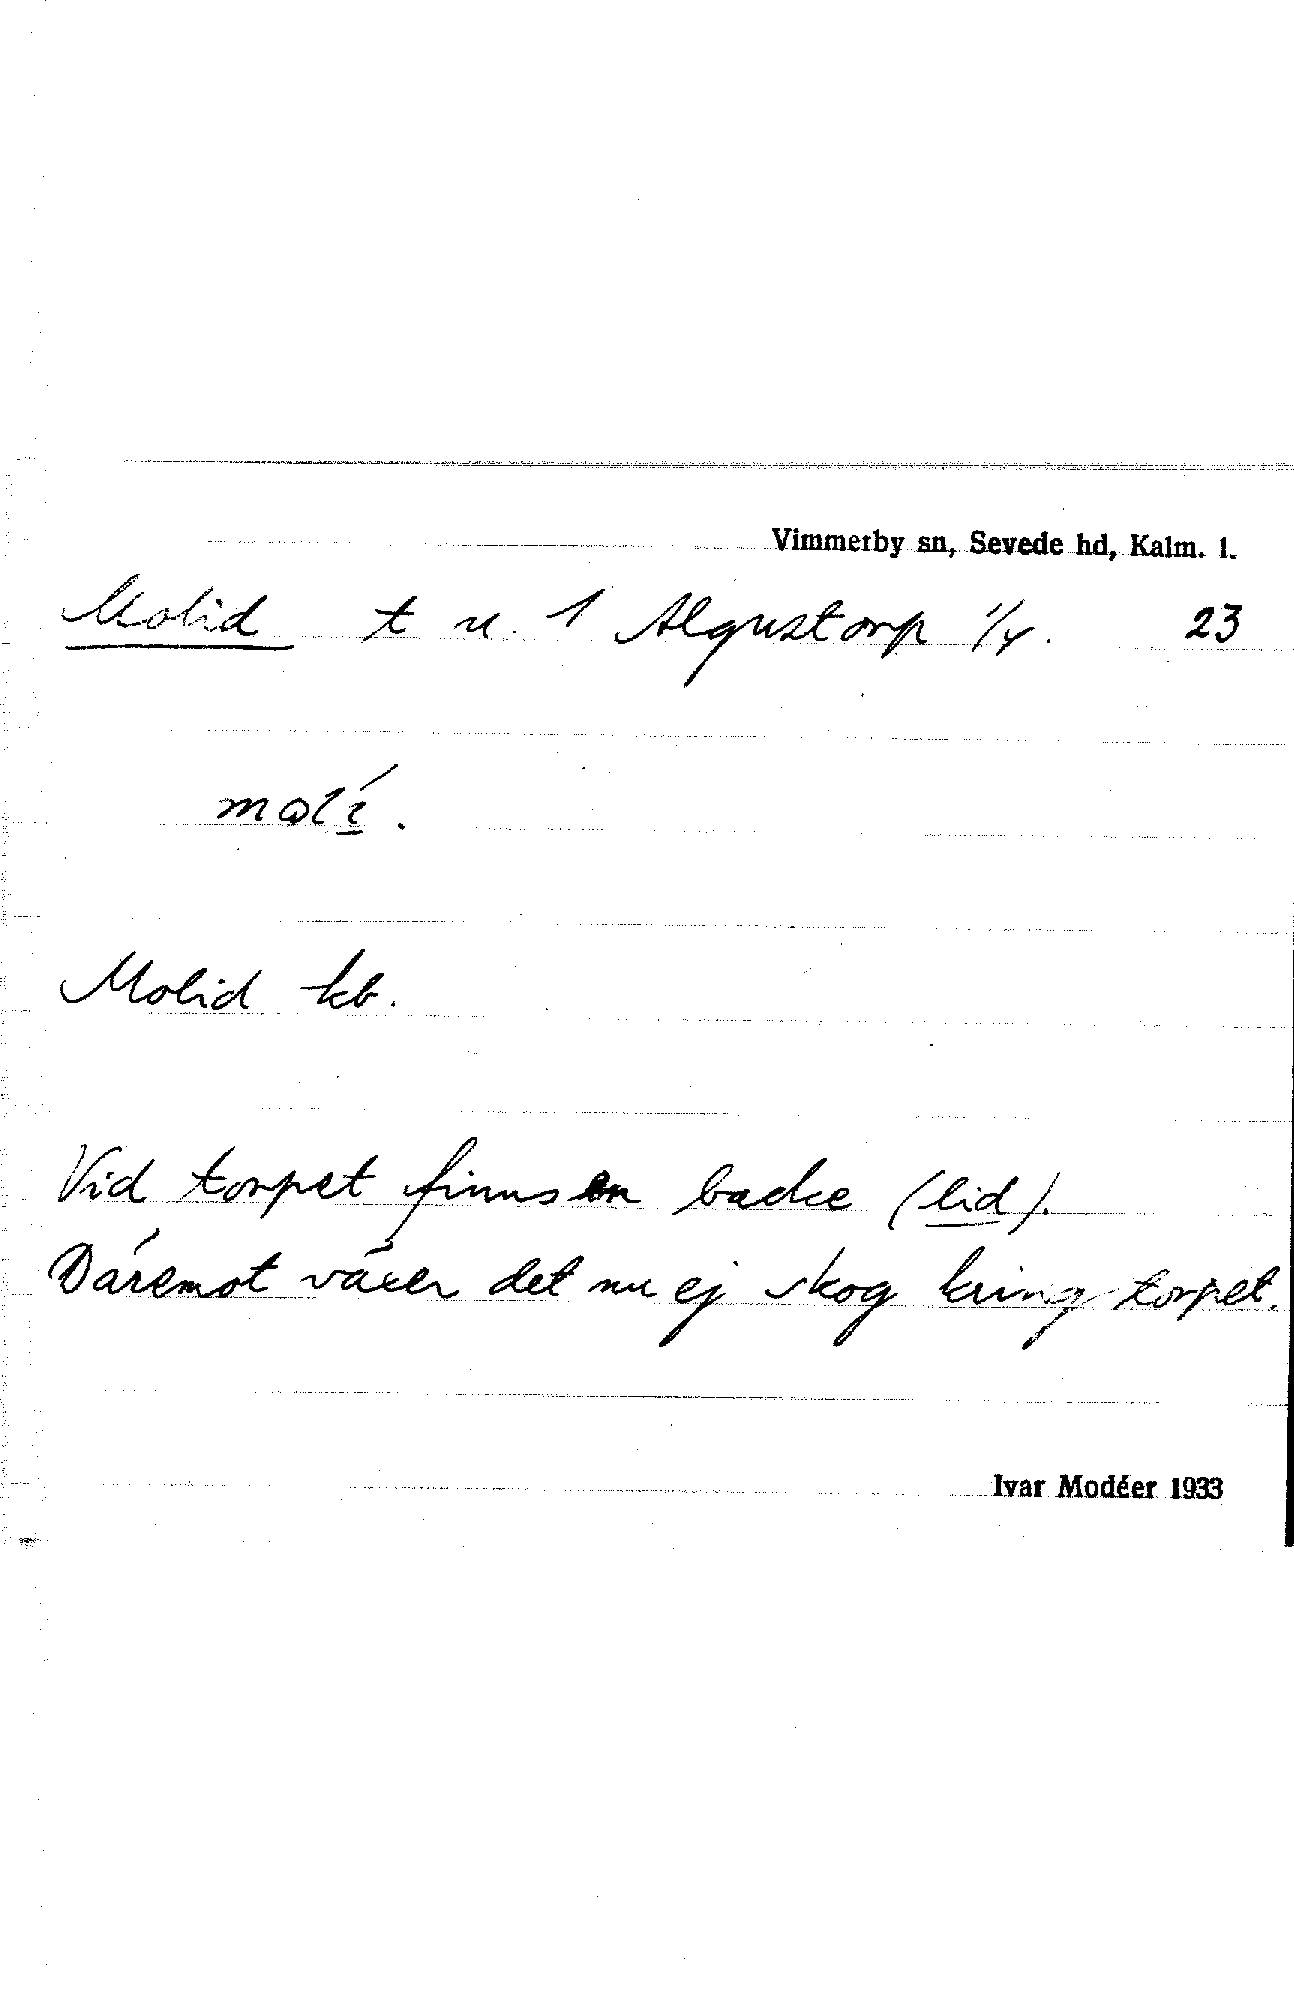 Vimmerby sn, Sevede hd, Kalm. l.
Molid t u. 1 Algustorp 1/4. 23
molí.
Molid kb.
Vid torpet finns en backe (lid).
Däremot växer det nu ej skog kring torpet.
Ivar Modéer 1933